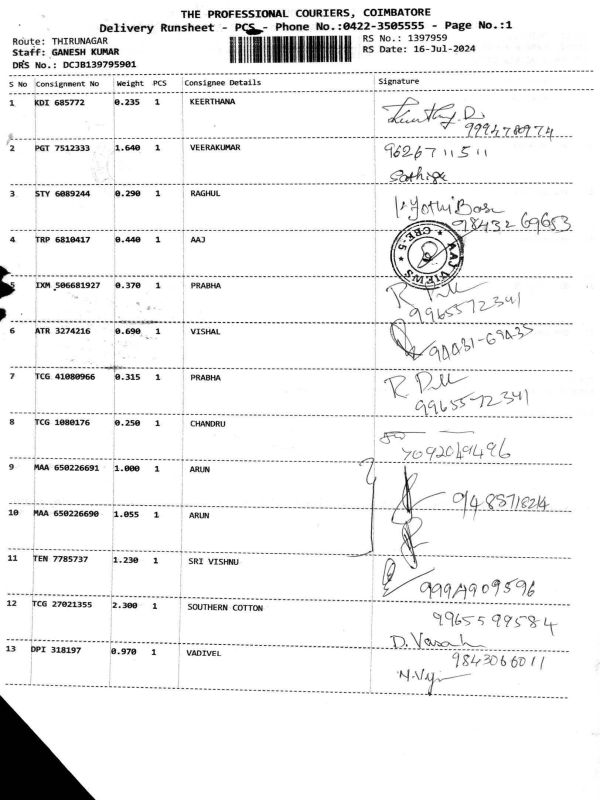 THE PROFESSIONAL COURIERS, COIMBATORE
Delivery Runsheet - PCS - Phone No.:0422-3505555 - Page No.:1
Route: THIRUNAGAR RS No.: 1397959
Staff: GANESH KUMAR RS Date: 16-Jul-2024
DRS No.: DCJB139795901
S No Consignment No Weight PCS Consignee Details Signature
1 KDI 685772 0.235 1 KEERTHANA
2 PGT 7512333 1.640 1 VEERAKUMAR 9626711511
Sathiya
3 STY 6089244 0.290 1 RAGHUL
Jothi Basu
98432 69653
4 TRP 6810417 0.440 1 AAJ AAJ VIEWS * CBE-5 *
5 IXM 506681927 0.370 1 PRABHA
9965572341
6 ATR 3274216 0.690 1 VISHAL
94431-69435
7 TCG 41080966 0.315 1 PRABHA
9965572341
8 TCG 1080176 0.250 1 CHANDRU
7092049496
9 MAA 650226691 1.000 1 ARUN
10 MAA 650226690 1.055 1 ARUN
11 TEN 7785737 1.230 1 SRI VISHNU
9994909596
12 TCG 27021355 2.300 1 SOUTHERN COTTON 9965599584
13 DPI 318197 0.970 1 VADIVEL 9843066011